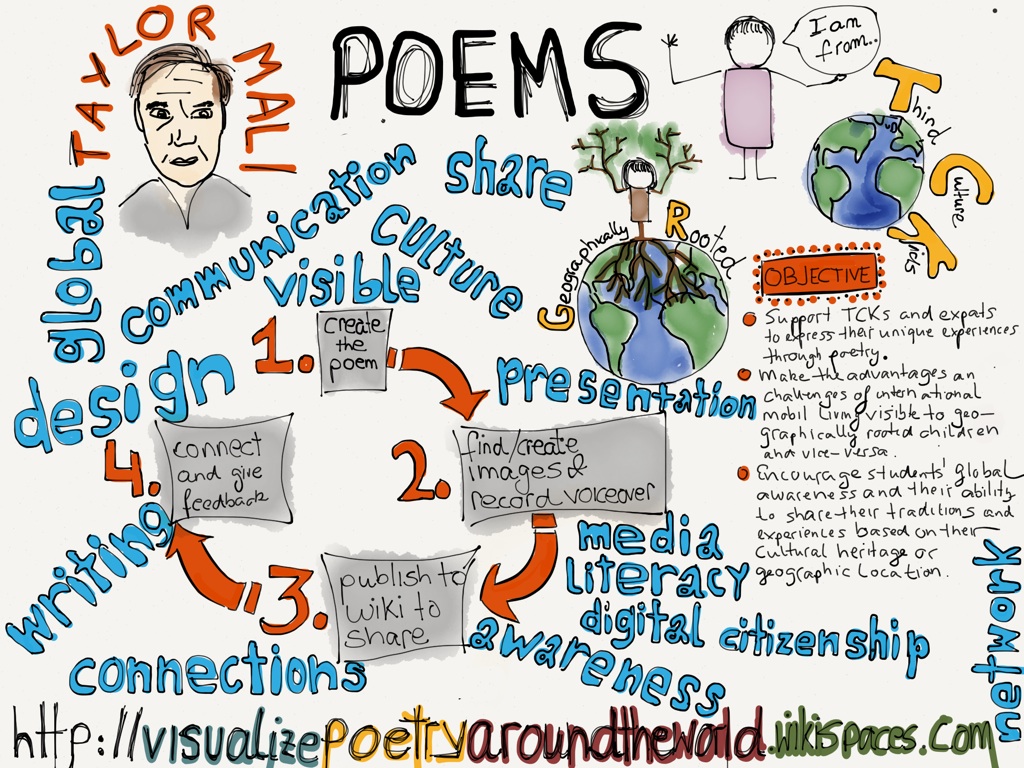 TAYLOR MALI
POEMS
I am
from..
Third
Culture
Kids
Geographically
Rooted
global
communication
share
Culture
visible
design
presentation
1. create
the
poem
2. find/create
images &
record voiceover
3. publish to
wiki to
share
4. connect
and give
feedback
writing
connections
awareness
media
literacy
digital citizenship
network
OBJECTIVE
Support TCKs and expats
to express their unique experiences
through poetry.
Make the advantages an
challenges of international
mobil living visible to geo-
graphically rooted children
and vice-versa.
Encourage students' global
awareness and their ability
to share their traditions and
experiences based on their
cultural heritage or
geographic location.
http://visualizepoetryaroundtheworld.wikispaces.com